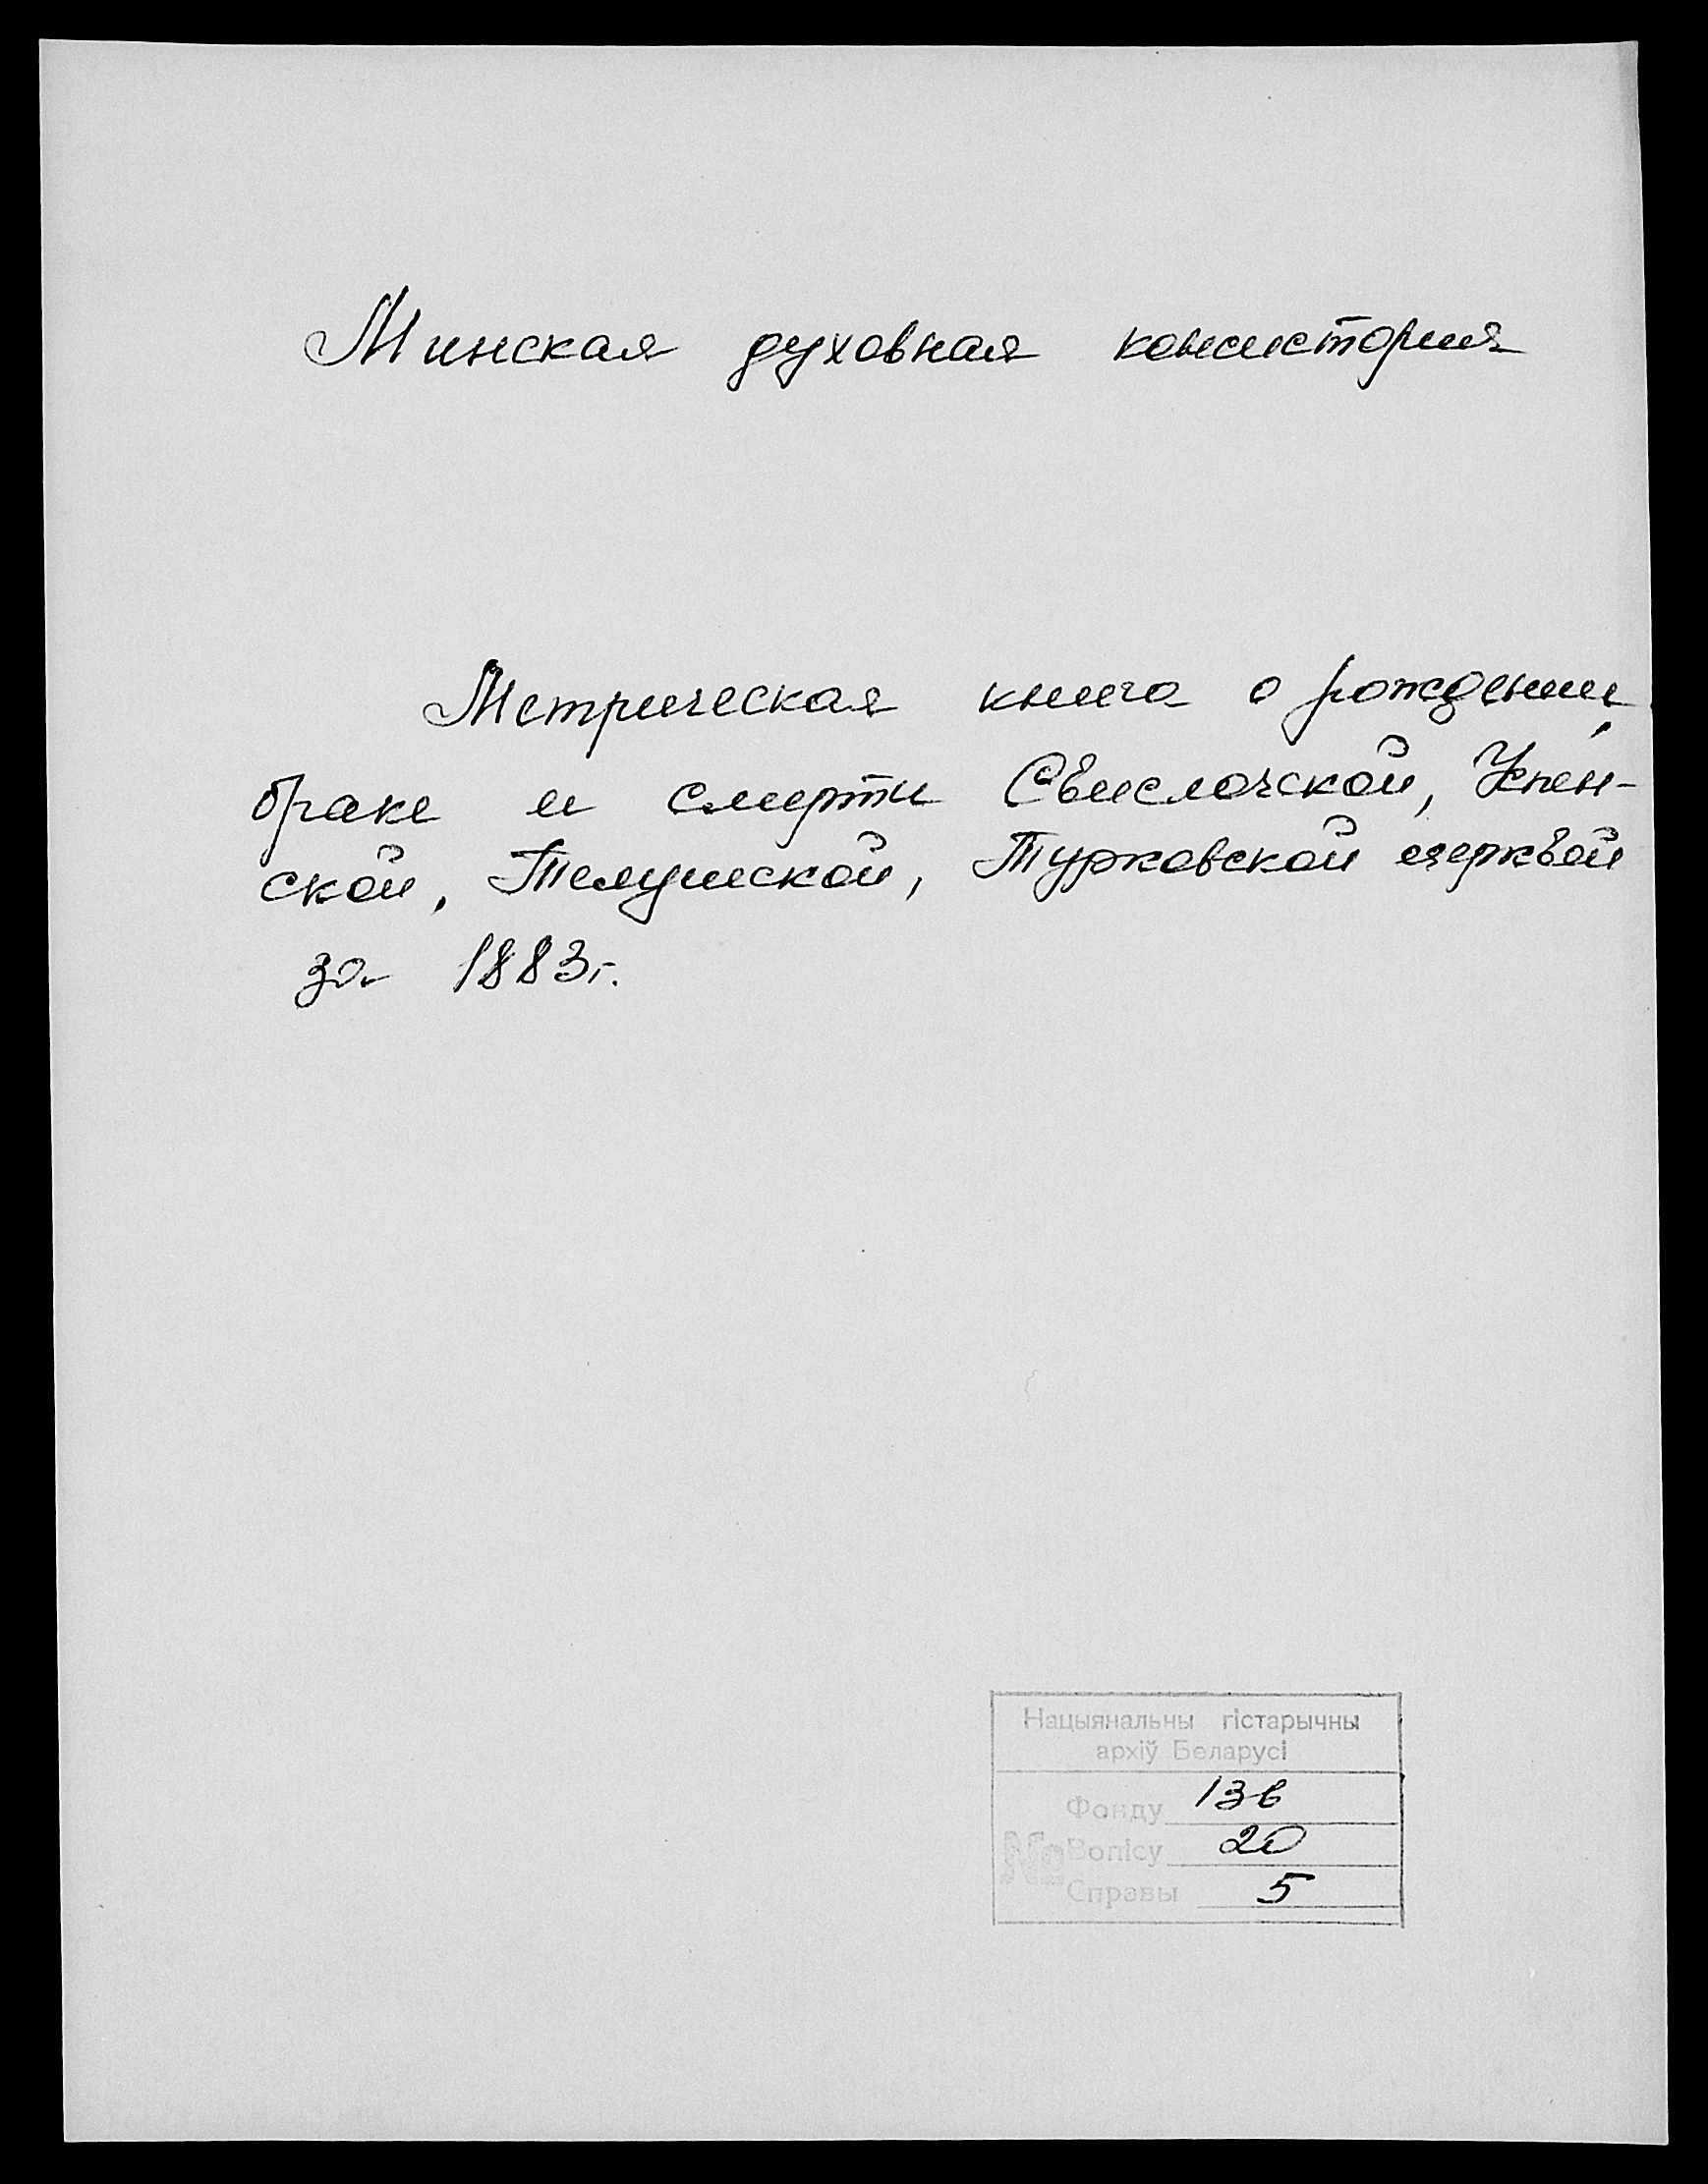 Минская духовная консистория
Метрическая книга о рождении,
браке и смерти Свислочской, Успен-
ской, Телушской, Турковской церквей
за 1883г.
Нацыянальны гістарычны
архіў Беларусі
Фонду 136
№ Вопісу 20
Справы 5